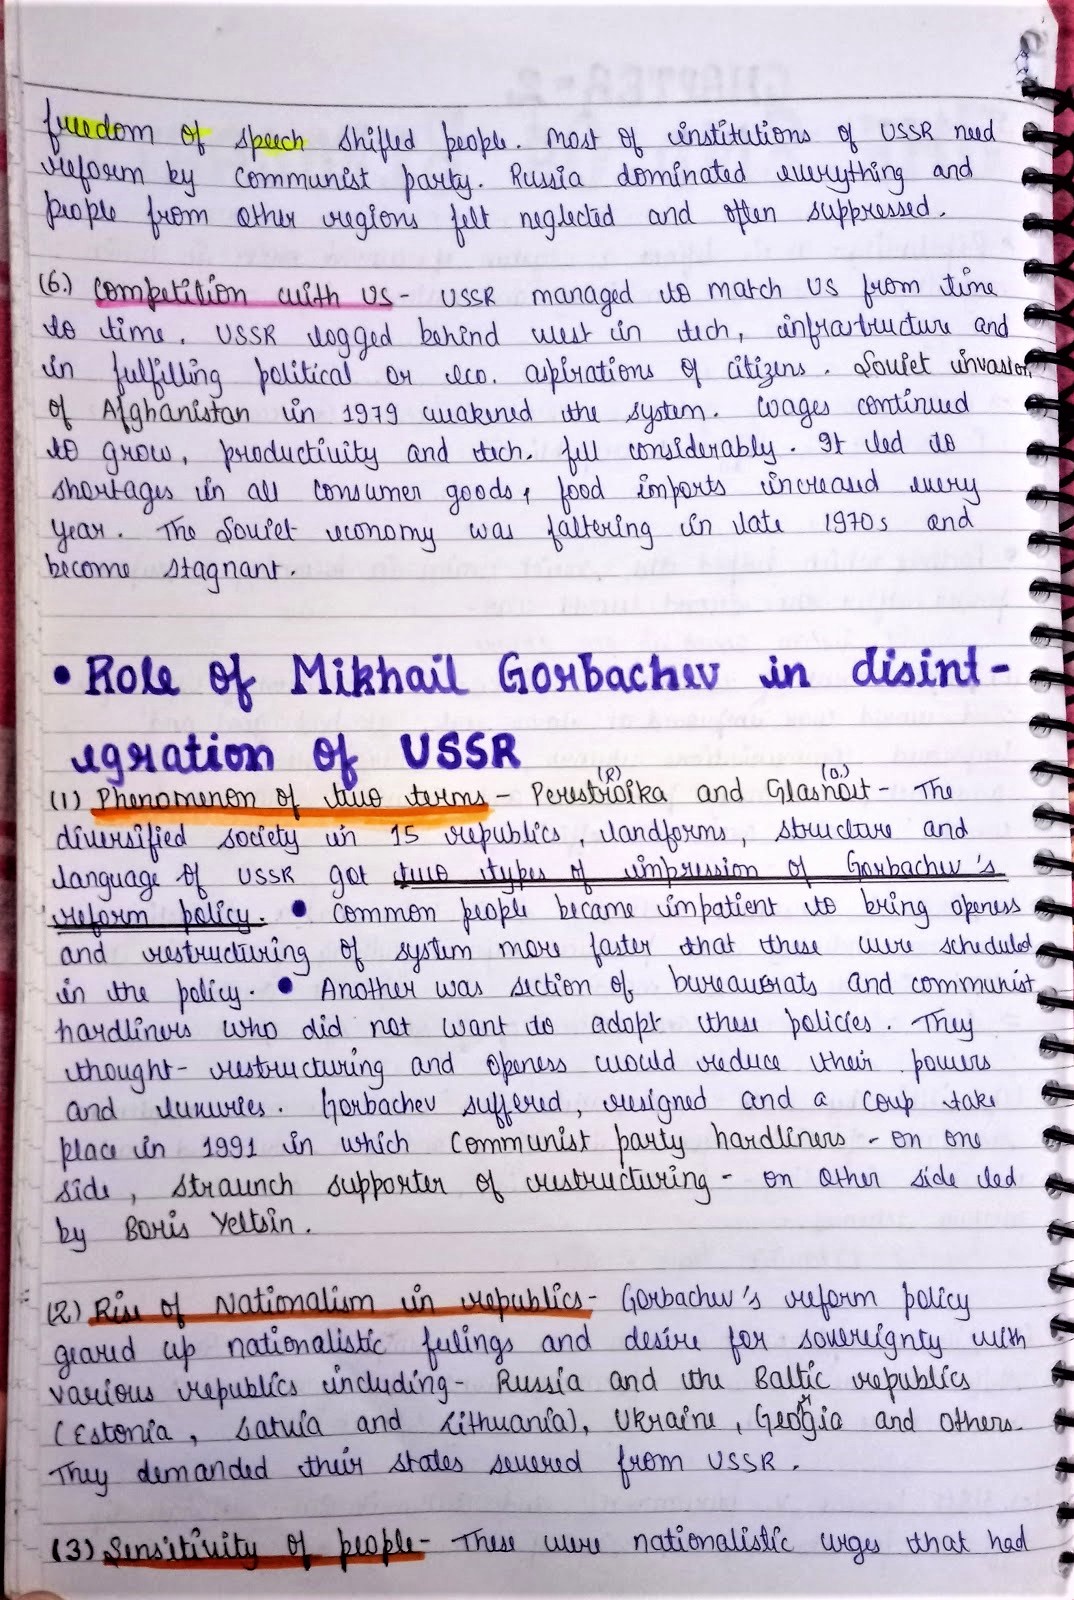 freedom of speech shifled people. Most of institutions of USSR need
reform by communist party. Russia dominated everything and
people from other regions felt neglected and often suppressed.
(6.) Competition with US - USSR managed to match US from time
to time. USSR logged behind west in tech, infrartructure and
in fulfilling political or eco. aspirations of citizens. Soviet invasion
of Afghanistan in 1979 weakened the system. Wages continued
to grow, productivity and tech. fell considerably. It led to
shortages in all consumer goods, food imports increased every
year. The Soviet economy was faltering in late 1970s and
become stagnant.
• Role of Mikhail Gorbachev in disint-
egration of USSR
(R) (O.)
(1) Phenomenon of two terms - Perestroika and Glasnost - The
diversified society in 15 republics, landforms, structure and
language of USSR got two types of impression of Gorbachev's
reform policy. • common people became impatient to bring openess
and restructuring of system more faster that these were scheduled
in the policy. • Another was section of bureaucrats and communist
hardliners who did not want to adopt these policies. They
thought - restructuring and openess would reduce their powers
and luxuries. Gorbachev suffered, resigned and a coup take
place in 1991 in which communist party hardliners - on one
side, straunch supporter of restructuring - on other side led
by Boris Yeltsin.
(2) Rise of Nationalism in republics - Gorbachev's reform policy
geared up nationalistic feelings and desire for sovereignty with
various republics including - Russia and the Baltic republics
(Estonia, Latvia and Lithuania), Ukraine, Georgia and others.
They demanded their states severed from USSR.
(3) Sensitivity of people - These were nationalistic urges that had